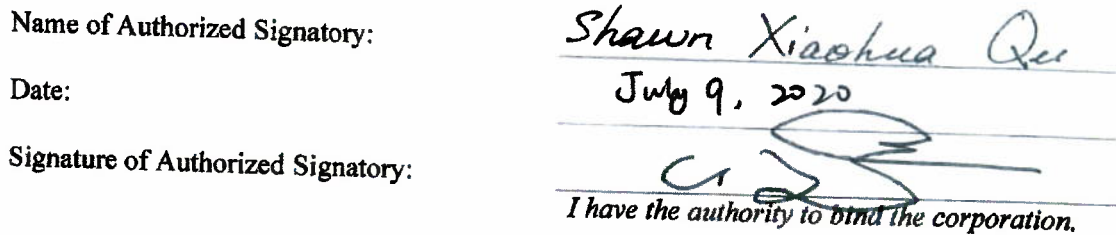 Name of Authorized Signatory: Shawn Xiaohua Qu
Date: July 9, 2020
Signature of Authorized Signatory:
I have the authority to bind the corporation.